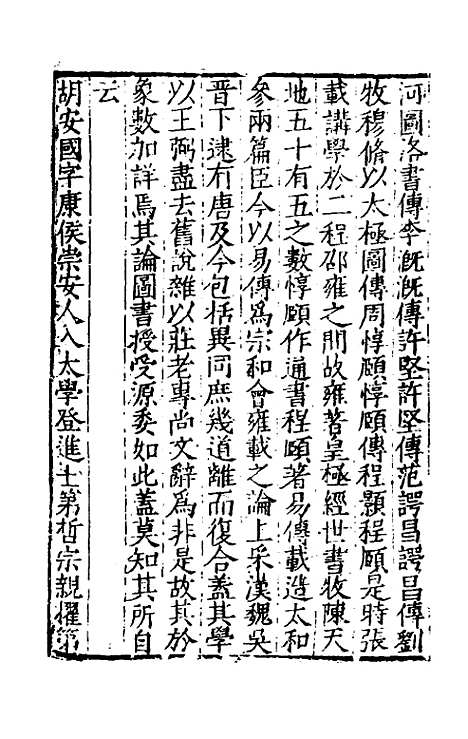 河圖洛書傳李旣旣傳許堅許堅傳范諤昌諤昌傳劉
牧穆脩以太極圖傳周惇頤惇頤傳程顥程頤是時張
載講學於二程邵雍之間故雍著皇極經世書牧陳天
地五十有五之數惇頤作通書程頤著易傳載造太和
參兩篇臣今以易傳爲宗和會雍載之論上采漢魏吳
晋下逮有唐及今包括異同庶幾道離而復合蓋其學
以王弼盡去舊說雜以莊老專尚文辭爲非是故其於
象數加詳焉其論圖書授受源委如此蓋莫知其所自
云
胡安國字康侯崇安人入太學登進士第哲宗親擢第